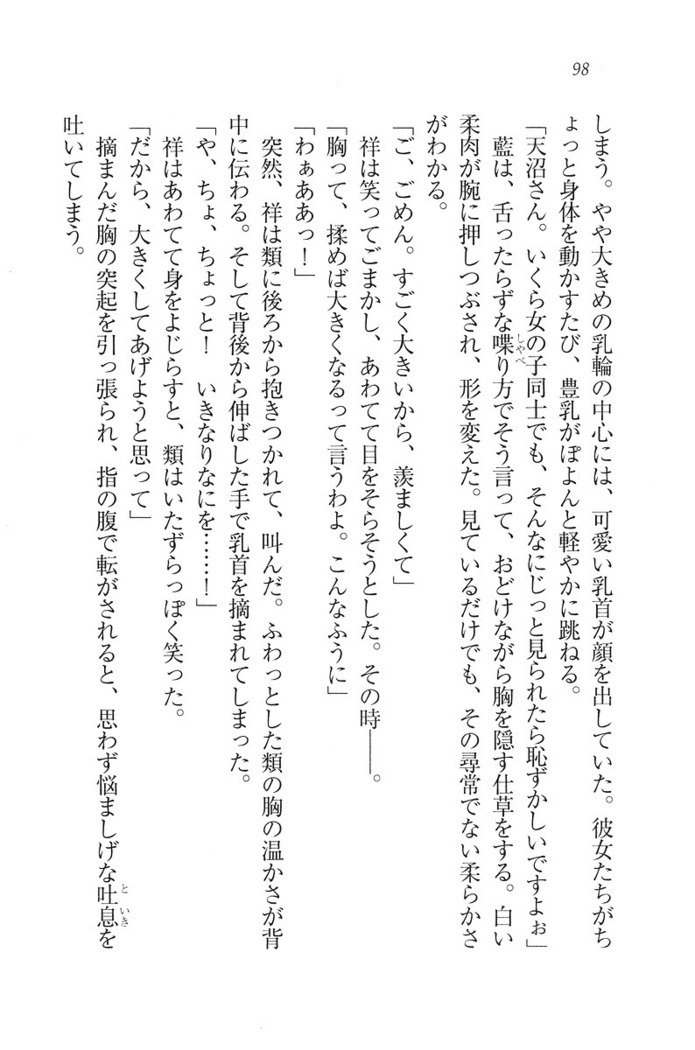 98
しまう。やや大きめの乳輪の中心には、可愛い乳首が顔を出していた。彼女たちがち
ょっと身体を動かすたび、豊乳がぽよんと軽やかに跳ねる。
「天沼さん。いくら女の子同士でも、そんなにじっと見られたら恥ずかしいですよぉ」
藍は、舌ったらずな喋り方でそう言って、おどけながら胸を隠す仕草をする。白い
柔肉が腕に押しつぶされ、形を変えた。見ているだけでも、その尋常でない柔らかさ
がわかる。
「ご、ごめん。すごく大きいから、羨ましくて」
祥は笑ってごまかし、あわてて目をそらそうとした。その時――。
「胸って、揉めば大きくなるって言うわよ。こんなふうに」
「わぁああっ！」
突然、祥は類に後ろから抱きつかれて、叫んだ。ふわっとした類の胸の温かさが背
中に伝わる。そして背後から伸ばした手で乳首を摘まれてしまった。
「や、ちょ、ちょっと！　いきなりなにを……！」
祥はあわてて身をよじらすと、類はいたずらっぽく笑った。
「だから、大きくしてあげようと思って」
摘まんだ胸の突起を引っ張られ、指の腹で転がされると、思わず悩ましげな吐息を
吐いてしまう。